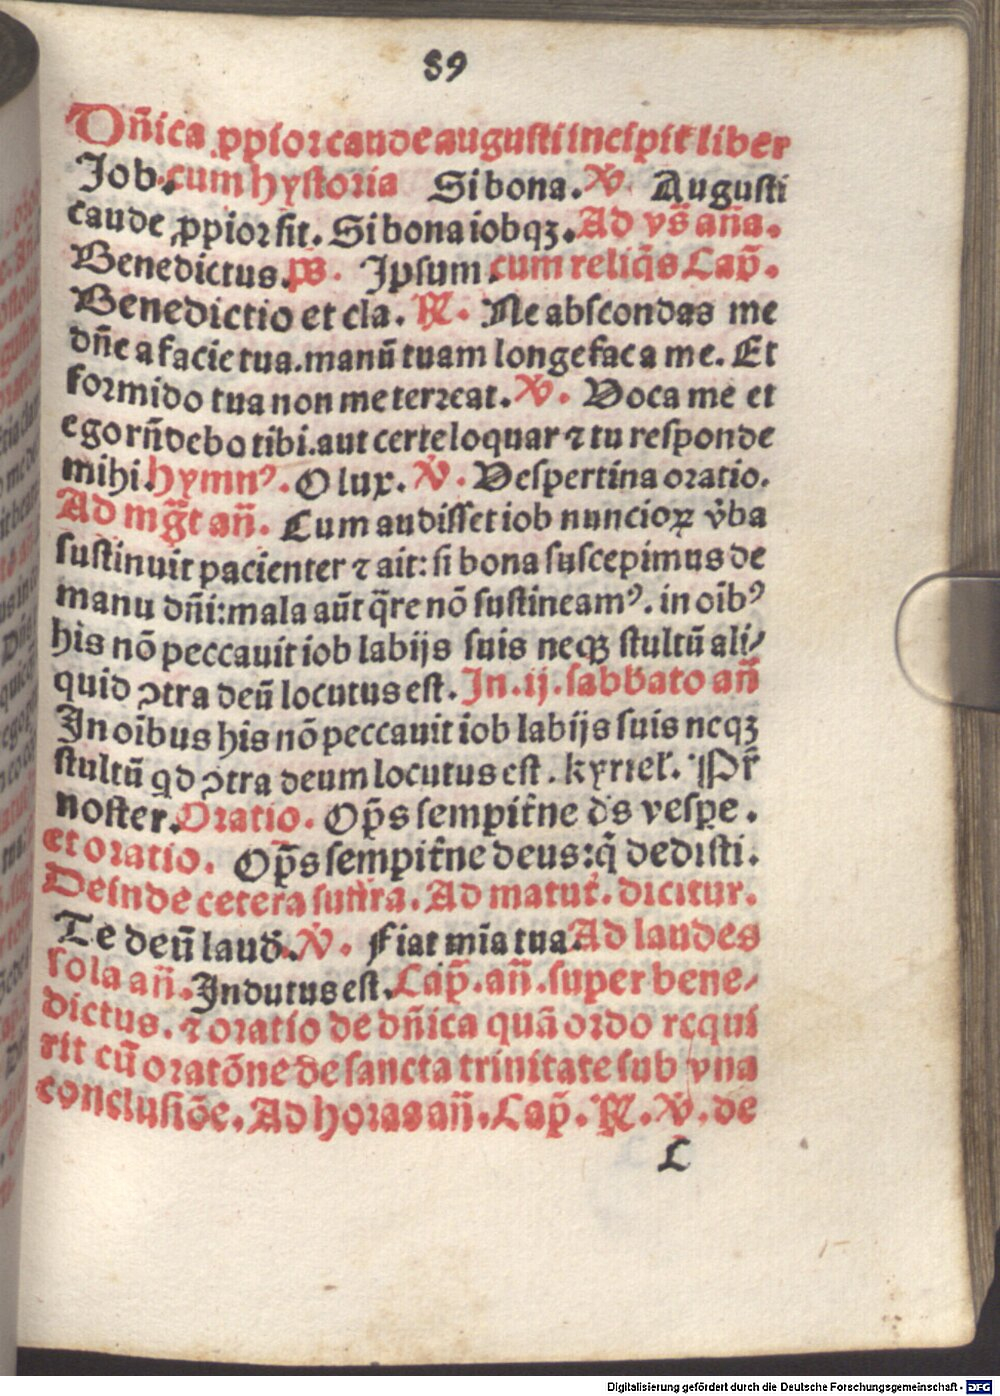 89
Dñica ꝓpior caude augusti incipit̃ liber
Job. cum hystoria Si bona. V̕. Augusti
caude ꝓpior sit. Si bona iobqꝫ. Ad vs̃ aña.
Benedictus. ps̃. Ipsum. cum reliq̃s Cap̃.
Benedictio et cla. ℟. Ne abscondas me
dñe a facie tua. manũ tuam longe fac a me. Et
formido tua non me terreat. V̕. Voca me et
ego rñdebo tibi. aut certe loquar ⁊ tu responde
mihi. Hymnꝰ. O lux. V̕. Vespertina oratio.
Ad mg̃t añ. Cum audisset iob nuncioꝝ v̕ba
sustinuit pacienter ⁊ ait: si bona suscepimus de
manu dñi: mala aũt q̃re nõ sustineamꝰ. in oĩbꝰ
his nõ peccauit iob labijs suis neqꝫ stultũ ali/
quid ꝯtra deũ locutus est. In .ij. sabbato añ
In oĩbus his nõ peccauit iob labijs suis neqꝫ
stultũ qd ꝯtra deum locutus est. kyriel̕. Pr̃
noster. Oratio. Op̃s sempit̃ne ds̃ vespe.
et oratio. Op̃s sempit̃ne deus: q̃ dedisti.
Deinde cetera sup̃ra. Ad matut̃. dicitur.
Te deũ laud̃. V̕. Fiat mĩa tua. Ad laudes
sola añ. Indutus est. Cap̃. añ. super bene/
dictus. ⁊ oratio de dñica quã ordo requi
rit cũ oratõne de sancta trinitate sub vna
conclusiõe. Ad horas añ. Cap̃. ℟. V̕. de
L
Digitalisierung gefördert durch die Deutsche Forschungsgemeinschaft - DFG